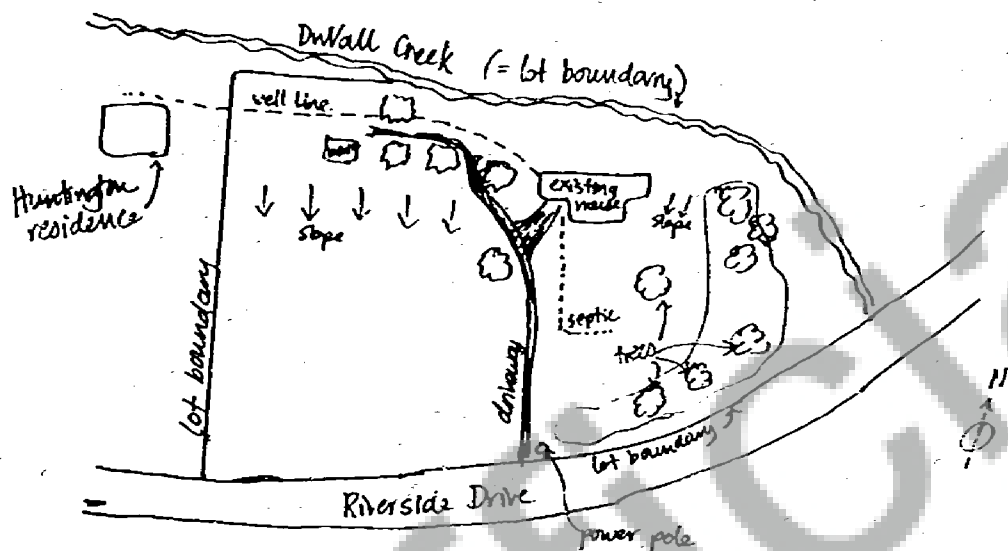 DuVall Creek (= lot boundary)
well line
existing
house
Huntington
residence
slope
slope
lot boundary
septic
trees
driveway
lot boundary
N
Riverside Drive
power pole